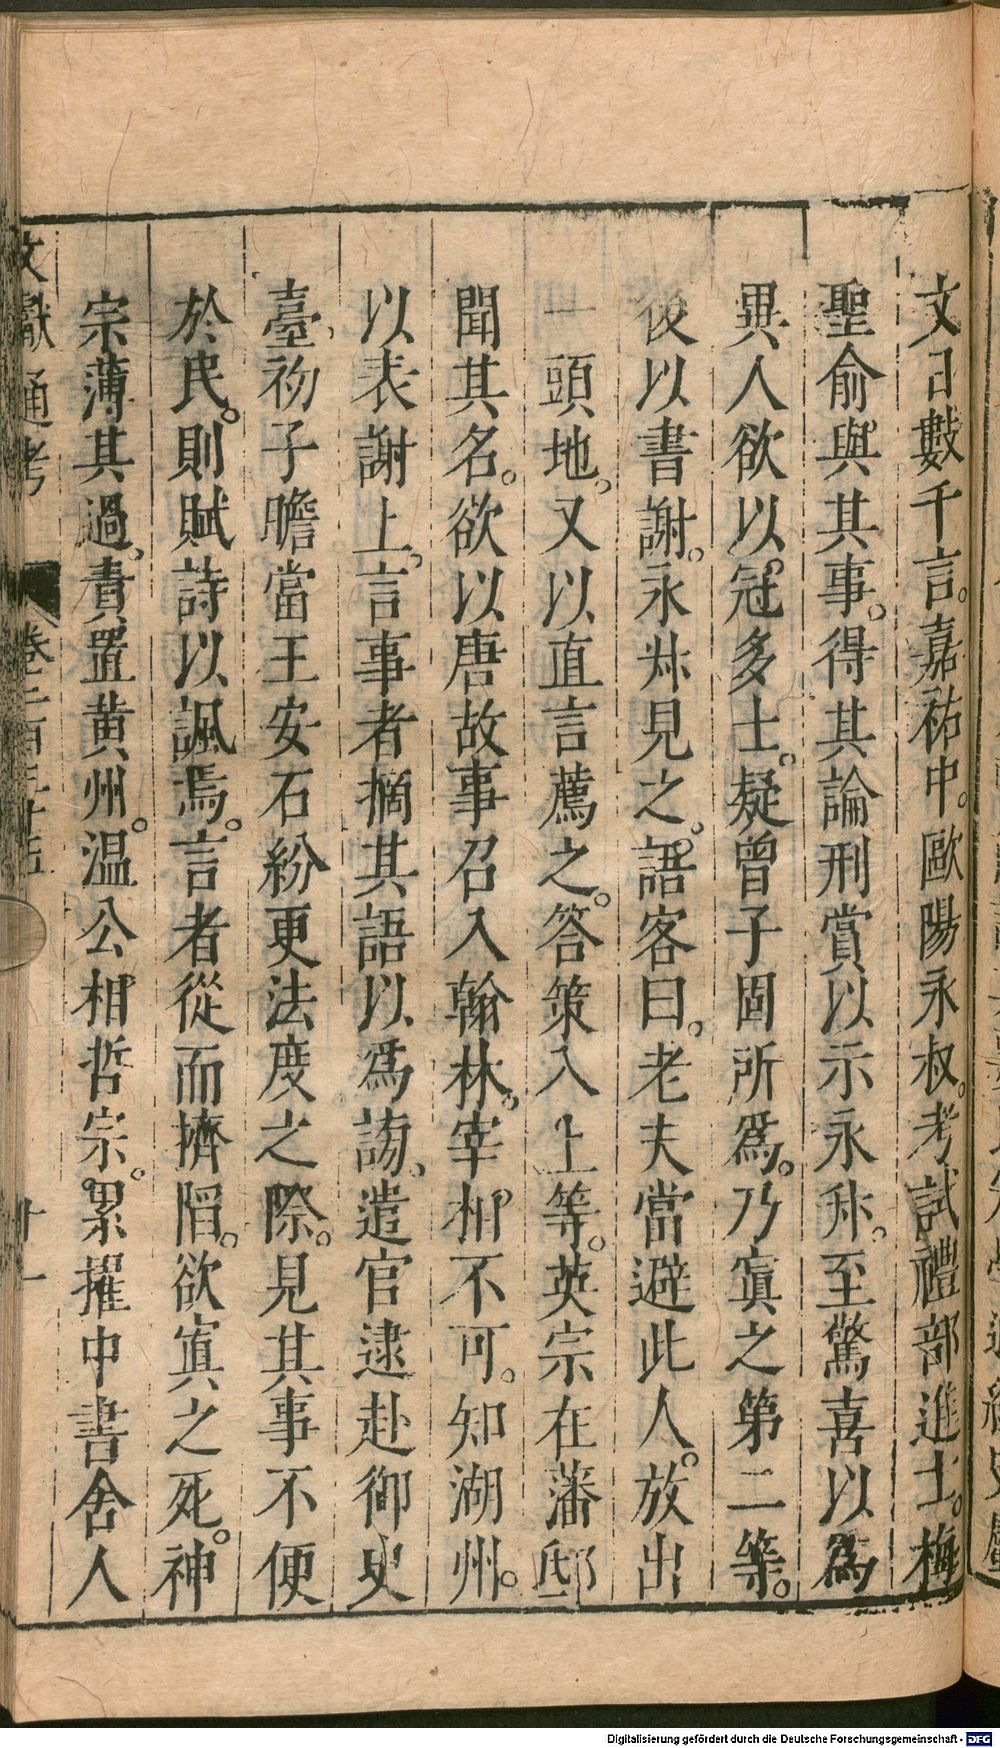 文日數千言。嘉祐中。歐陽永叔。考試禮部進士。梅
聖俞與其事。得其論刑賞以示永叔。至驚喜以為
異人欲以冠多士。疑曾子固所為。乃寘之第二等。
後以書謝。永叔見之。語客曰。老夫當避此人。放出
一頭地。又以直言薦之。答策入上等。英宗在藩邸
聞其名。欲以唐故事召入翰林。宰相不可。知湖州。
以表謝上。言事者摘其語以為謗。遣官逮赴御史
臺。初子瞻當王安石紛更法度之際。見其事不便
於民。則賦詩以諷焉。言者從而擠陷。欲寘之死。神
宗薄其過。責置黄州。温公相哲宗。累擢中書舍人
文獻通考
卷二百三十五
十一
Digitalisierung gefördert durch die Deutsche Forschungsgemeinschaft - DFG